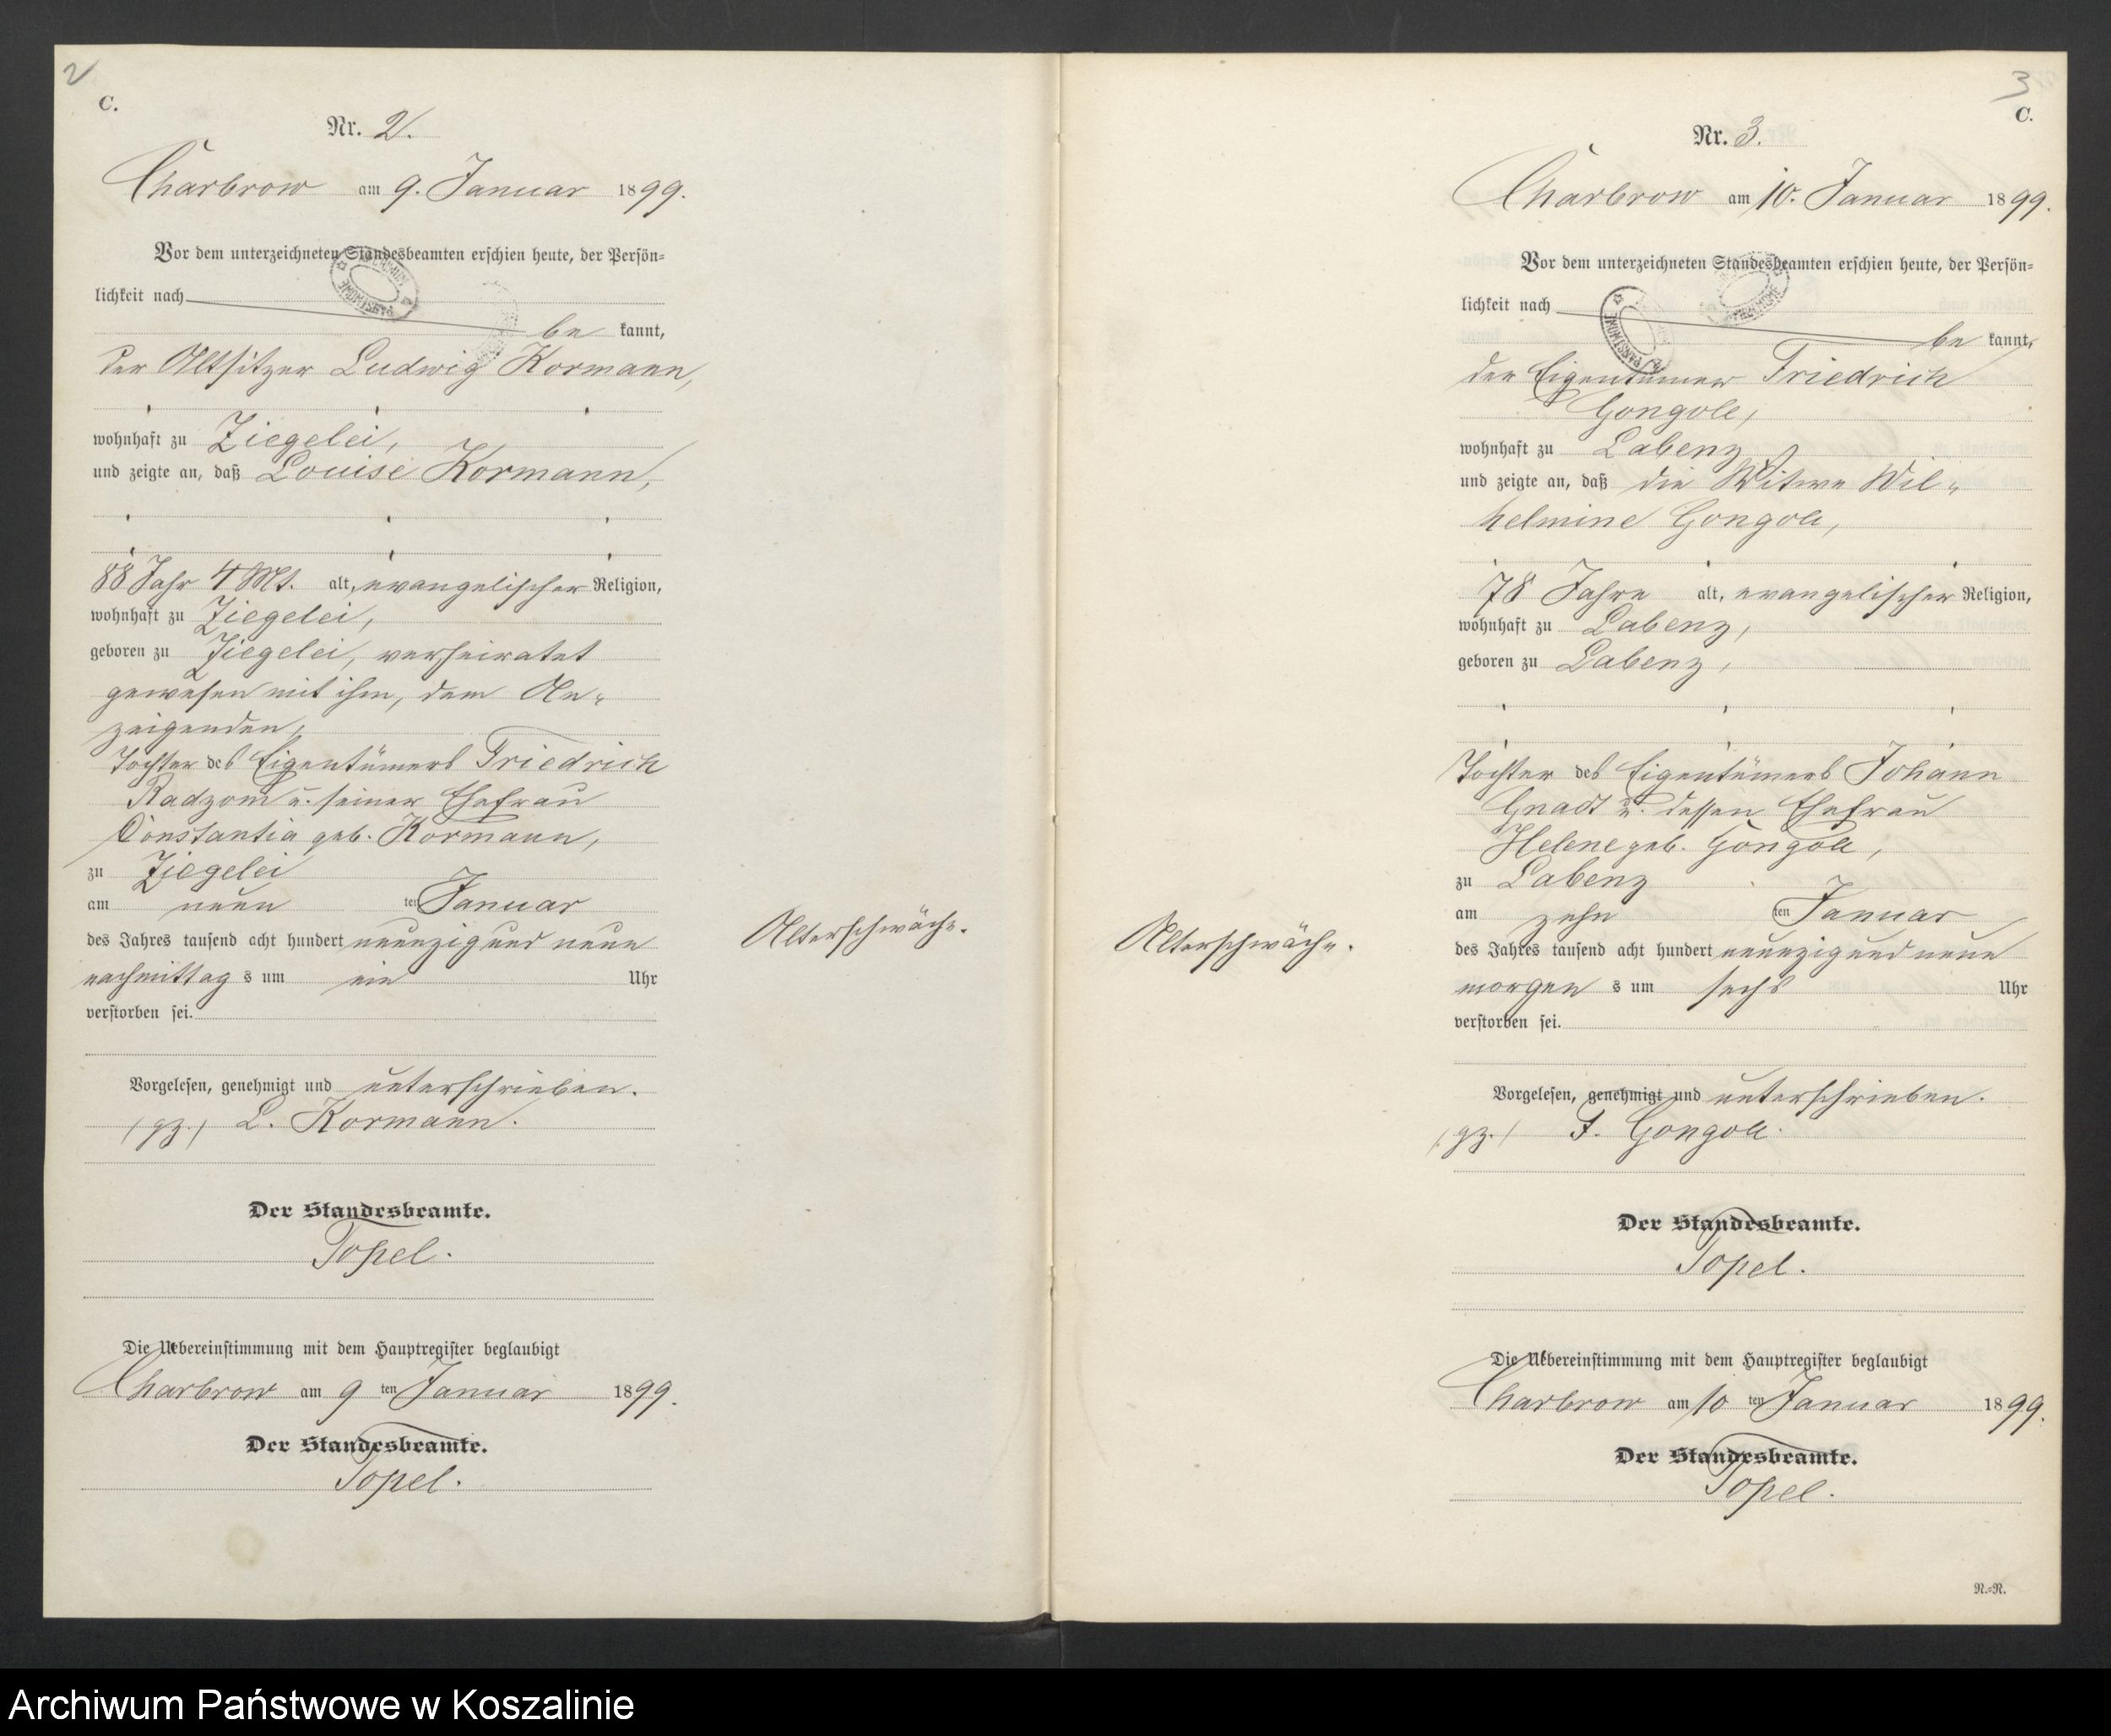 2
C.
Nr. 2.
Charbrow am 9. Januar 1899.
Vor dem unterzeichneten Standesbeamten erschien heute, der Persön-
lichkeit nach
be kannt,
der Altsitzer Ludwig Kormann,
wohnhaft zu Ziegelei,
und zeigte an, daß Louise Kormann,
88 Jahr 4 Mt. alt, evangelischer Religion,
wohnhaft zu Ziegelei,
geboren zu Ziegelei, verheiratet
gewesen mit ihm, dem An-
zeigenden,
Tochter des Eigentümers Friedrich
Radzom u. seiner Ehefrau
Constantia geb. Kormann,
zu Ziegelei
am neun ten Januar
des Jahres tausend acht hundert neunzig und neun
nachmittag s um ein Uhr
verstorben sei.
Vorgelesen, genehmigt und unterschrieben.
(gz.) L. Kormann.
Der Standesbeamte.
Topel.
Die Uebereinstimmung mit dem Hauptregister beglaubigt
Charbrow am 9 ten Januar 1899.
Der Standesbeamte.
Topel.
Alterschwäche.
3
C.
Nr. 3.
Charbrow am 10. Januar 1899.
Vor dem unterzeichneten Standesbeamten erschien heute, der Persön-
lichkeit nach
be kannt,
der Eigentümer Friedrich
Gongoll,
wohnhaft zu Labenz
und zeigte an, daß die Witwe Wil-
helmine Gongoll,
78 Jahre alt, evangelischer Religion,
wohnhaft zu Labenz,
geboren zu Labenz,
Tochter des Eigentümers Johann
Gnadt u. dessen Ehefrau
Helene geb. Gongoll,
zu Labenz
am zehn ten Januar
des Jahres tausend acht hundert neunzig und neun
morgen s um sechs Uhr
verstorben sei.
Vorgelesen, genehmigt und unterschrieben.
(gz.) F. Gongoll.
Der Standesbeamte.
Topel.
Die Uebereinstimmung mit dem Hauptregister beglaubigt
Charbrow am 10 ten Januar 1899.
Der Standesbeamte.
Topel.
Alterschwäche.
N.=N.
Archiwum Państwowe w Koszalinie